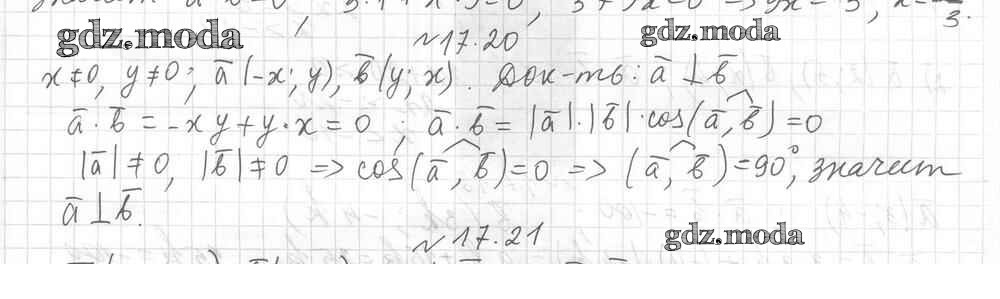 gdz.moda
gdz.moda
3.
№17.20
x≠0, y≠0; a̅(-x; y), b̅(y; x). Док-ть: a̅ ⊥ b̅
a̅·b̅ = -xy+y·x = 0 ; a̅·b̅ = |a̅|·|b̅|·cos(a̅, b̅) = 0
|a̅| ≠ 0, |b̅| ≠ 0 => cos(a̅, b̅) = 0 => (a̅, b̅) = 90°, значит
a̅ ⊥ b̅.
№17.21
gdz.moda